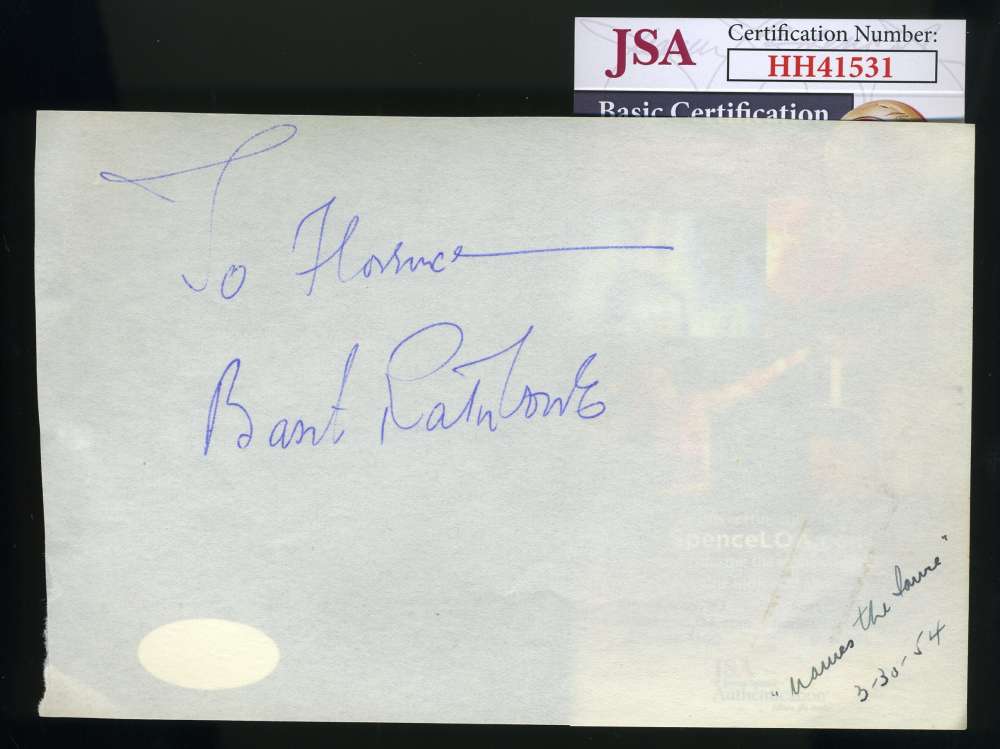 JSA
Certification Number:
HH41531
Basic Certification
To Florence
Basil Rathbone
SpenceLO
"names the same"
3-30-54
JSA
Authentication